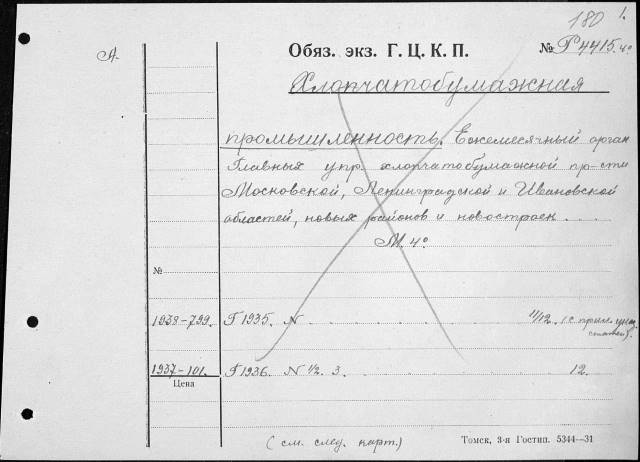 180 1.
А.
Обяз. экз. Г. Ц. К. П. № Р4415. 4°
Хлопчатобумажная
промышленность. Ежемесячный орган
Главных упр. хлопчатобумажной пр-сти
Московской, Ленинградской и Ивановской
областей, новых районов и новостроек . . .
М. 4°
№
1938-799. Г 1935. N . . . 11/12. (с прил. указ.
статей).
1937-101. Г 1936. N 1/2. 3. . . . 12.
Цена
(см. след. карт.)
Томск, 3-я Гостип. 5344—31